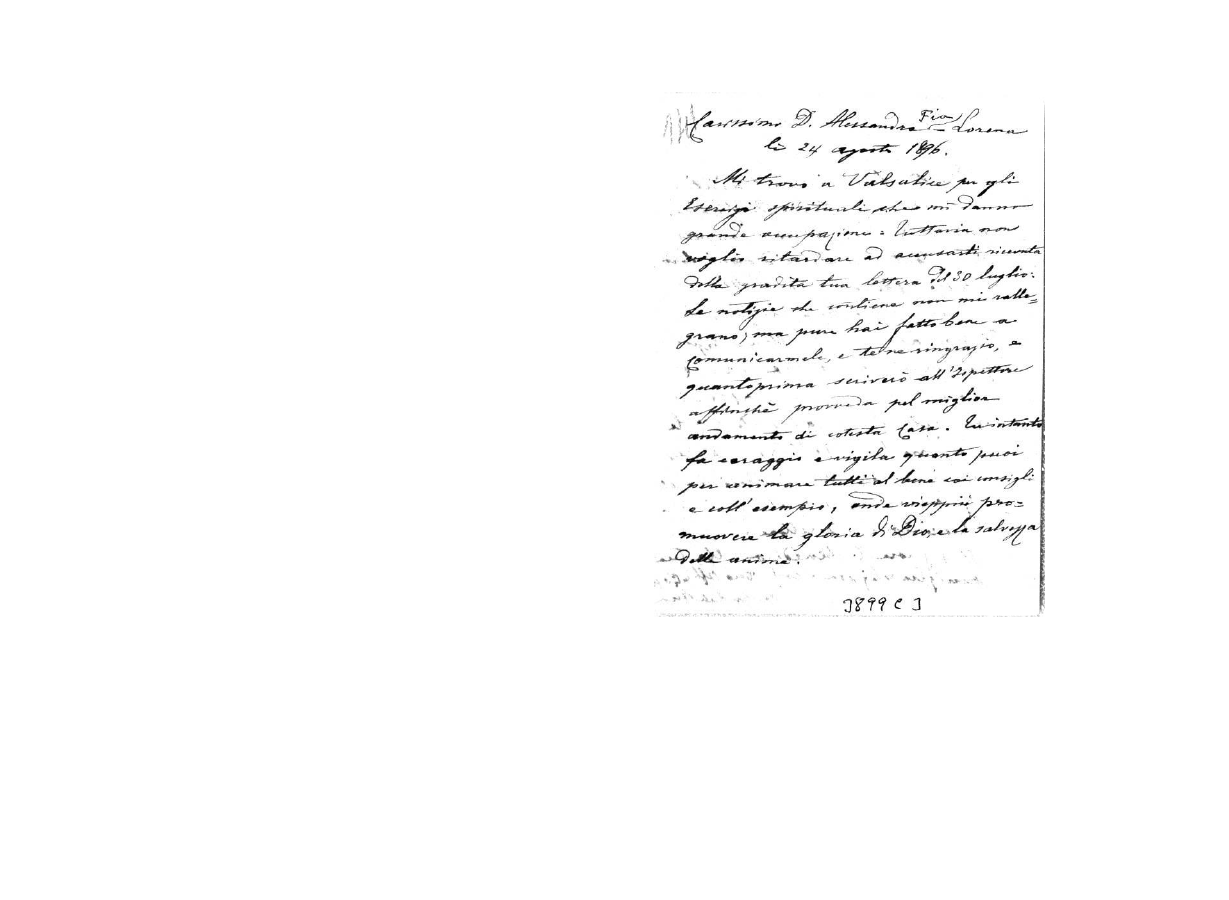 Carissimo D. Alessandro Fia) - Lorena
li 24 agosto 1896.
Mi trovo a Valsalice per gli
Esercizi spirituali che mi danno
grande occupazione: Tuttavia non
voglio ritardare ad accusarti ricevuta
della gradita tua lettera del 30 luglio.
Le notizie che contiene non mi ralle=
grano; ma pure hai fatto bene a
comunicarmele, e te ne ringrazio, e
quantoprima scriverò all'Ispettore
affinchè provveda pel miglior
andamento di cotesta Casa. Tu intanto
fa coraggio e vigila quanto puoi
per animare tutti al bene coi consigli
e coll'esempio, onde vieppiù pro=
muovere la gloria di Dio, e la salvezza
delle anime.
3899 C 3